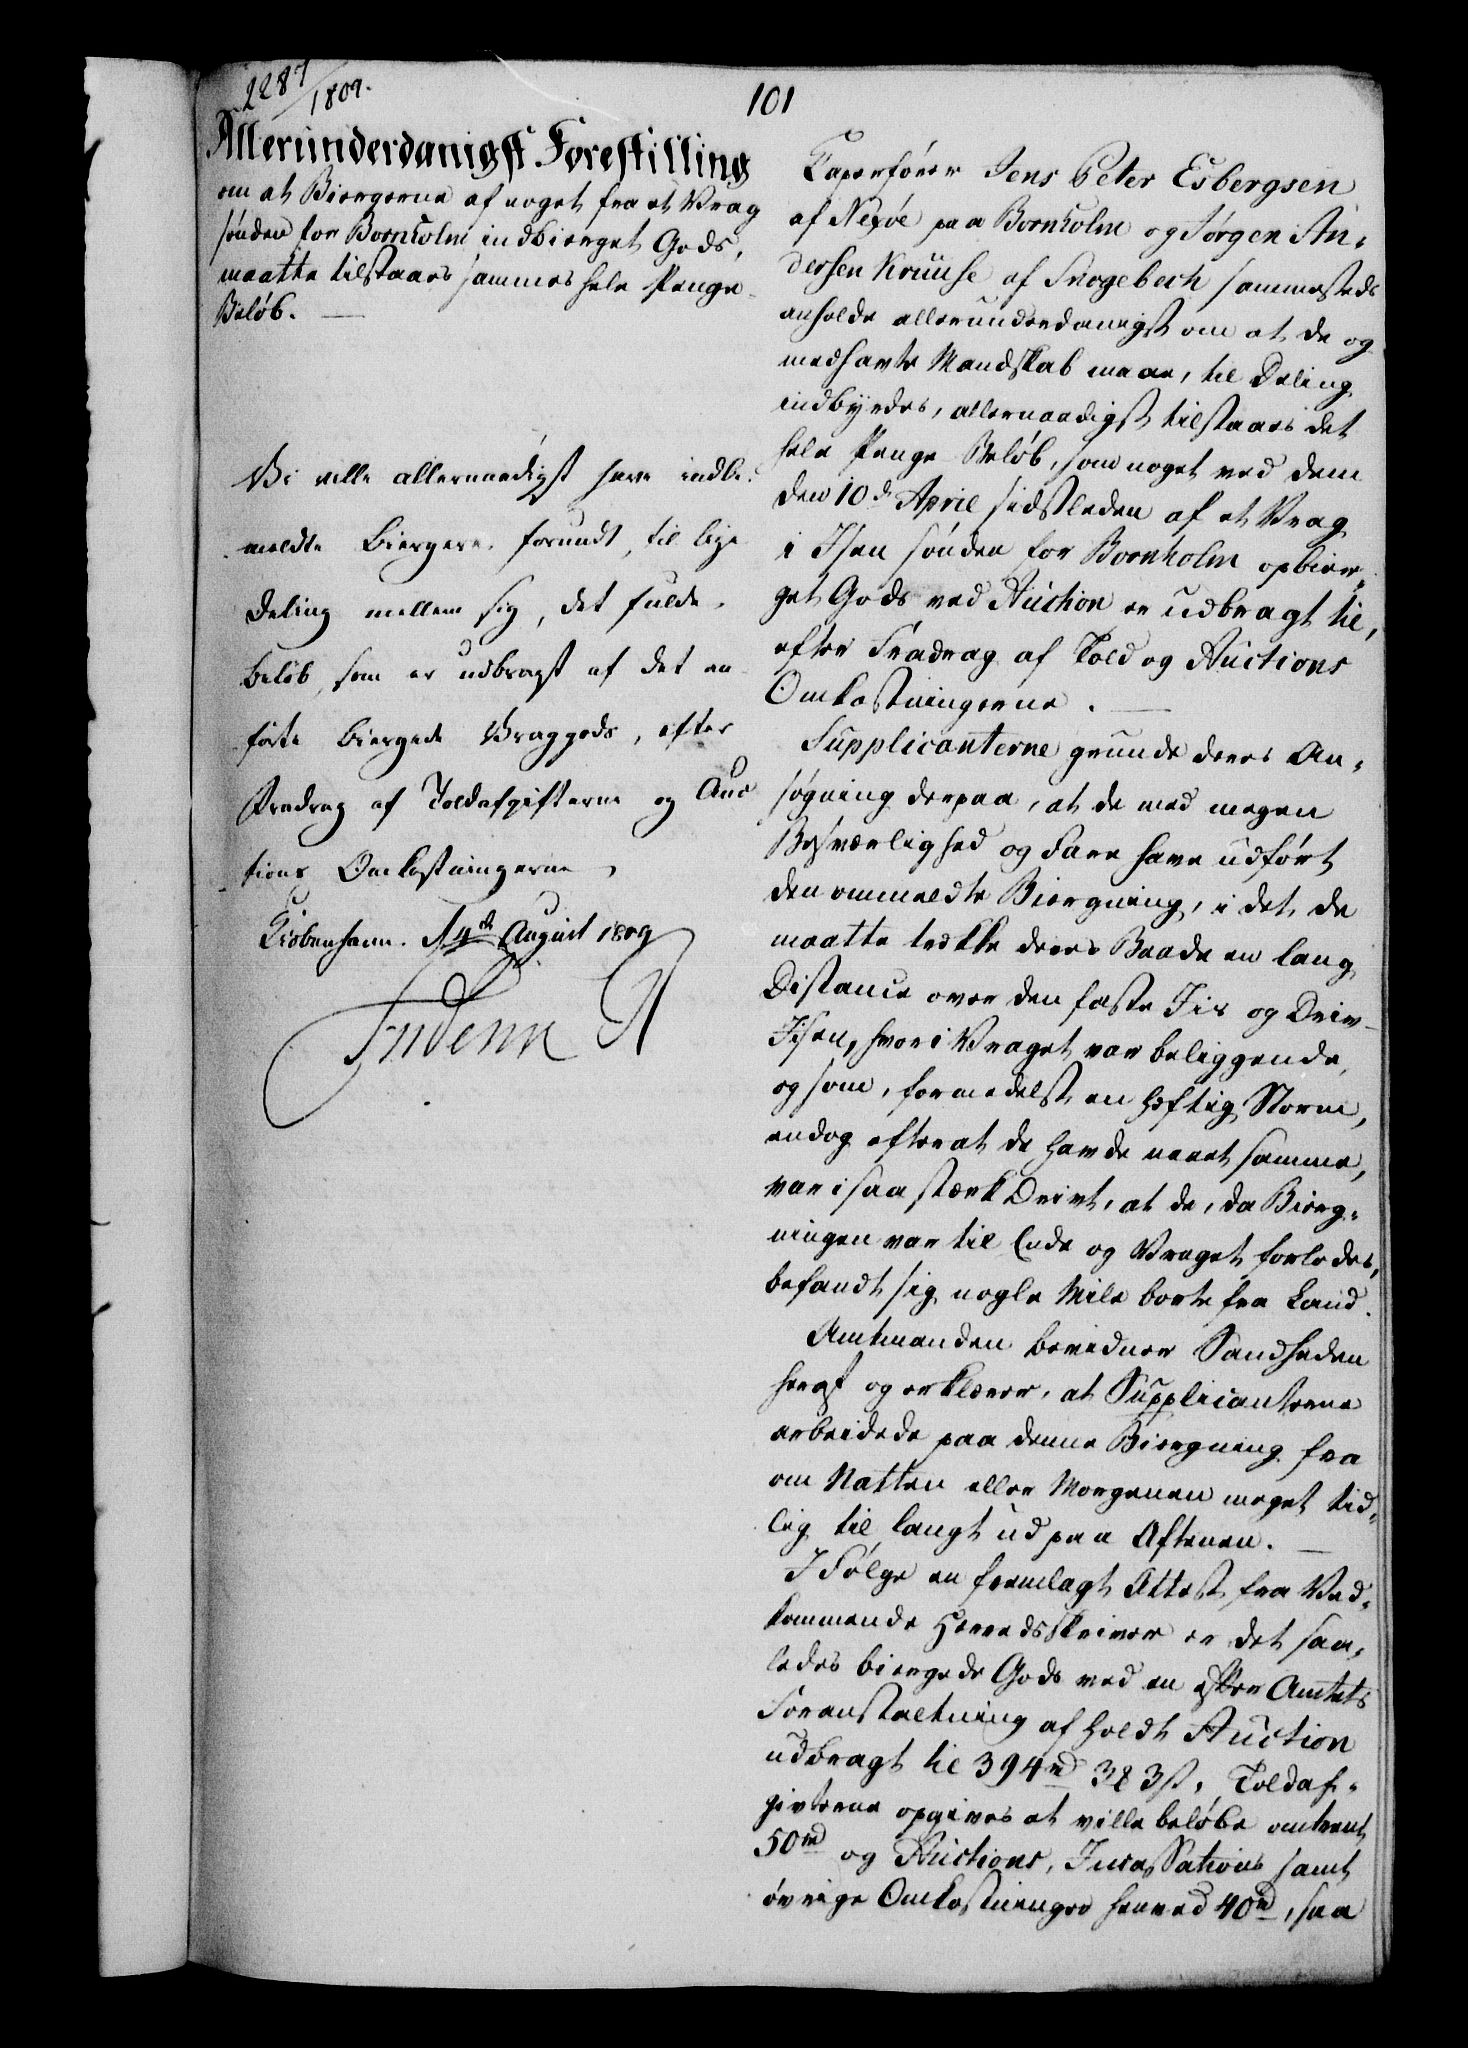 2287/1809.
101
Allerunderdanigst Forestilling
om at Biergerne af noget fra et Vrag
sønden for Bornholm indbierget Gods,
maatte tilstaaes sammes hele Penge-
Beløb. —
Vi ville allernaadigst have indbe-
meldte Biergere forundt, til lige
Deling mellem sig, det fulde
Beløb, som er udbragt af det an-
førte biergede Vraggods, efter
Fradrag af Toldafgifterne og Auc
tions Omkostningerne,
Kiøbenhavn. d 14de August 1809
Friderik R
Caperfører Jens Peter Esbergsen
af Nexøe paa Bornholm og Jørgen An-
dersen Kruuse af Snogebech sammesteds
anholde allerunderdanigst om at de og
medhavte Mandskab maae, til Deling
indbyrdes, allernaadigst tilstaaes det
hele Penge Beløb, som noget ved dem
den 10de April sidstleden af et Vrag
i Isen sønden for Bornholm opbier-
get Gods ved Auction er udbragt til,
efter Fradrag af Told og Auctions
Omkostningerne. —
Supplicanterne grunde deres An-
søgning derpaa, at de med megen
Besværlighed og Fare have udført
den ommeldte Biergning, i det de
maatte trække deres Baade en lang
Distance over den faste Iis og Driv-
Isen, hvori Vraget var beliggende,
og som, formedelst en heftig Storm,
endog efterat de havde naaet samme,
var i saa stærk Drivt, at de, da Bierg-
ningen var til Ende og Vraget forlodes,
befandt sig nogle Mile borte fra Land.
Amtmanden bevidner Sandheden
heraf og erklærer, at Supplicanterne
arbeidede paa denne Biergning fra
om Natten eller Morgenen meget tid-
lig til langt ud paa Aftenen. —
I Følge en fremlagt Attest fra Ved-
kommende Herredsskriver er det saa-
ledes biergede Gods ved en efter Amtets
Foranstaltning afholdt Auction
udbragt til 394 rd 3 ℳ 3 ß, Toldaf-
givterne opgives at ville beløbe omtrent
50 rd og Auctions, Incassations samt
øvrige Omkostninger henved 40 rd, saa